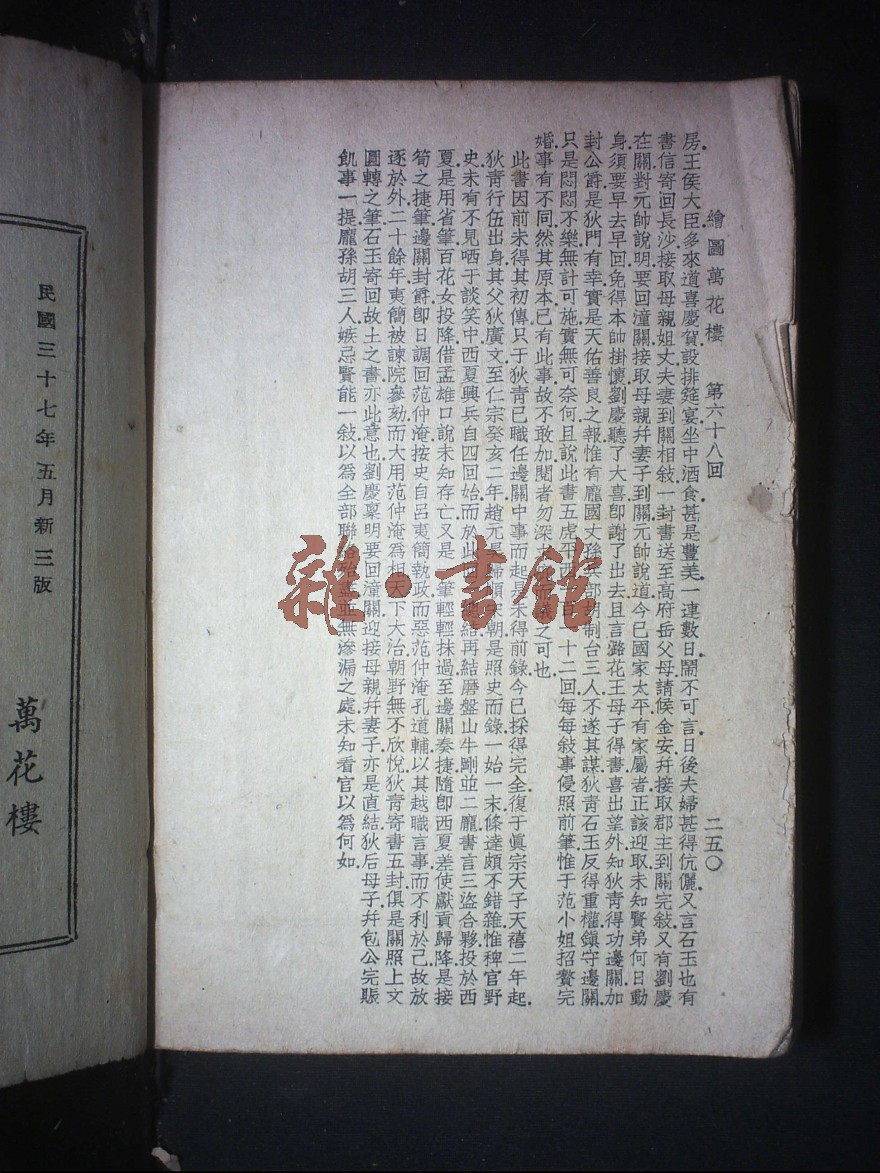 繪圖萬花樓 第六十八回 二五〇
房王侯大臣多來道喜慶賀設排筵宴坐中酒食甚是豐美一連數日鬧不可言日後夫婦甚得伉儷又言石玉也有
書信寄回長沙接取母親姐丈夫妻到關相敍一封書送至高府岳父母請候金安幷接取郡主到關完敍又有劉慶
在關對元帥說明要回潼關接取母親幷妻子到關元帥說道今已國家太平有家屬者正該迎取未知賢弟何日動
身須要早去早回免得本帥掛懷劉慶聽了大喜卽謝了出去且言潞花王母子得書喜出望外知狄靑得功邊關加
封公爵是狄門有幸實是天佑善良之報惟有龐國丈孫兵部胡制台三人不遂其謀狄靑石玉反得重權鎭守邊關
只是悶悶不樂無計可施實無可奈何且說此書五虎平西一百一十二回每每敍事侵照前筆惟于范小姐招贅完
婚事有不同然其原本已有此事故不敢加閱者勿深之可也
此書因前未得其初傳只于狄靑已職任邊關中事而起是未得前錄今已採得完全復于眞宗天子天禧二年起
狄靑行伍出身其父狄廣文至仁宗癸亥二年趙元昊歸順宋朝是照史而錄一始一末條達頗不錯雜惟稗官野
史未有不見哂于談笑中西夏興兵自四回始而於此結再結磨盤山牛剛並二龐書言三盜合夥投於西
夏是用省筆百花女投降借孟雄口說未知存亡又是一筆輕輕抹過至邊關奏捷隨卽西夏差使獻貢歸降是接
筍之捷筆邊關封爵卽日調回范仲淹按史自呂夷簡執政而惡范仲淹孔道輔以其越職言事而不利於己故放
逐於外二十餘年夷簡被諫院參劾而大用范仲淹爲相天下大治朝野無不欣悅狄靑寄書五封俱是關照上文
圓轉之筆石玉寄回故土之書亦此意也劉慶稟明要回潼關迎接母親幷妻子亦是直結狄后母子幷包公完賑
飢事一提龐孫胡三人嫉忌賢能一敍以爲全部聯絡並無滲漏之處未知看官以爲何如
民國三十七年五月新三版
萬花樓
雜·書館